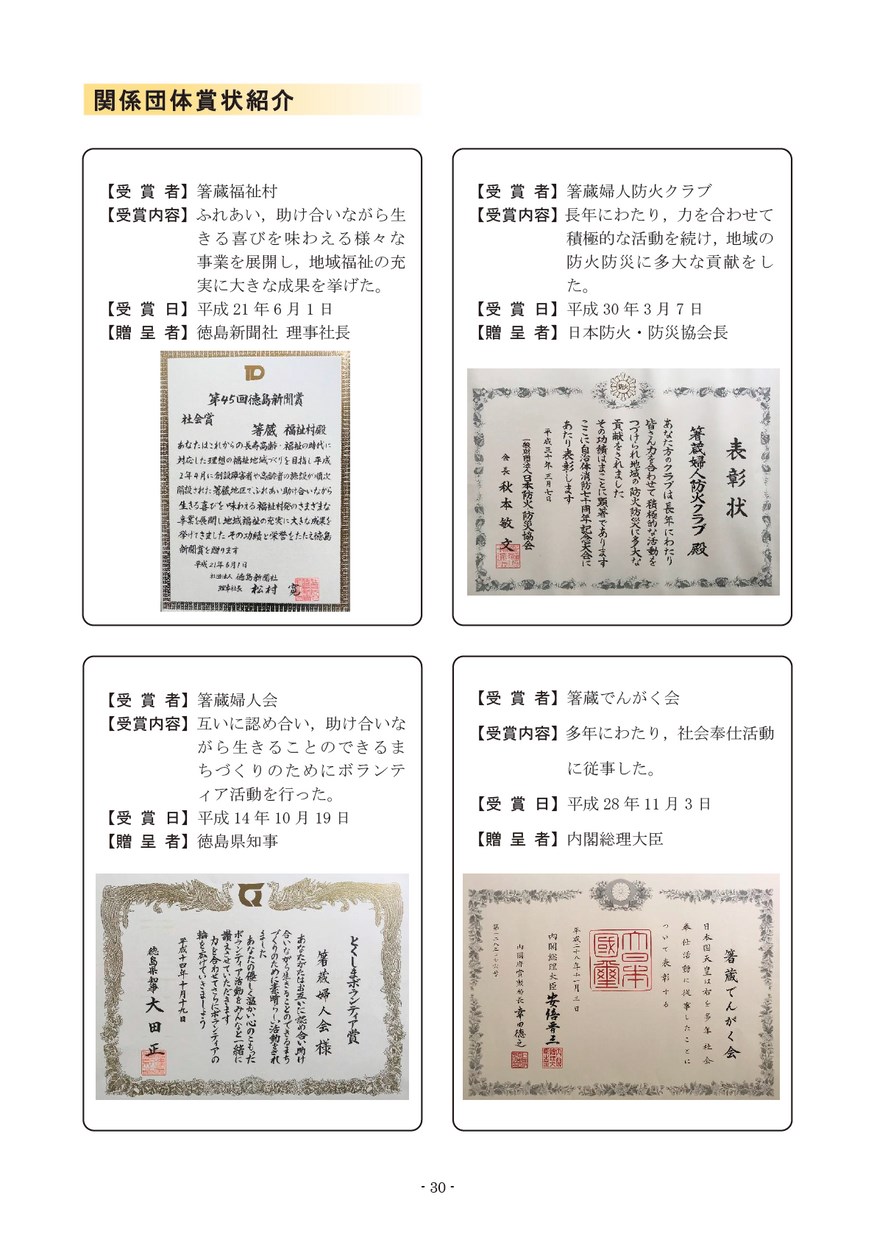 関係団体賞状紹介
【受 賞 者】箸蔵福祉村
【受賞内容】ふれあい，助け合いながら生
きる喜びを味わえる様々な
事業を展開し，地域福祉の充
実に大きな成果を挙げた。
【受 賞 日】平成 21 年 6 月 1 日
【贈 呈 者】徳島新聞社 理事社長
第45回徳島新聞賞
社会賞
箸蔵 福祉村殿
あなたはこれからの長寿高齢・福祉の時代に
対応した理想の福祉地域づくりを目指し平成
2年4月に創設障害者や高齢者の施設が順次
開設された箸蔵地区でふれあい助け合いながら
生きる喜びを味わえる福祉村発のさまざまな
事業を展開し地域福祉の充実に大きな成果を
挙げてきました その功績と栄誉をたたえ徳島
新聞賞を贈ります
平成21年6月1日
社団法人 徳島新聞社
理事社長 松村 寛
【受 賞 者】箸蔵婦人防火クラブ
【受賞内容】長年にわたり，力を合わせて
積極的な活動を続け，地域の
防火防災に多大な貢献をし
た。
【受 賞 日】平成 30 年 3 月 7 日
【贈 呈 者】日本防火・防災協会長
表彰状
箸蔵婦人防火クラブ 殿
あなた方のクラブは長年にわたり
皆さん力を合わせて積極的な活動を
つづけられ地域の防火防災に多大な
貢献をされました
その功績はまことに顕著であります
ここに自治体消防七十周年記念大会に
あたり表彰します
平成三十年 三月七日
一般財団法人日本防火・防災協会
会長 秋本敏文
【受 賞 者】箸蔵婦人会
【受賞内容】互いに認め合い，助け合いな
がら生きることのできるま
ちづくりのためにボランテ
ィア活動を行った。
【受 賞 日】平成 14 年 10 月 19 日
【贈 呈 者】徳島県知事
とくしまボランティア賞
箸蔵婦人会 様
あなたがたはお互いに認め合い助け
合いながら生きることのできるまち
づくりのために素晴らしい活動をされ
ました
あなたの優しく温かい心のこもった
ボランティア活動をみんなと一緒に
讃えさせていただきます
力を合わせてさらにボランティアの
輪を広げていきましょう
平成十四年十月十九日
徳島県知事 大田 正
【受 賞 者】箸蔵でんがく会
【受賞内容】多年にわたり，社会奉仕活動
に従事した。
【受 賞 日】平成 28 年 11 月 3 日
【贈 呈 者】内閣総理大臣
箸蔵でんがく会
日本国天皇は右を多年社会
奉仕活動に従事したことに
ついて表彰する
大日本
國璽
平成二十八年十一月三日
内閣総理大臣 安倍晋三
内閣府賞勲局長 幸田徳之
- 30 -